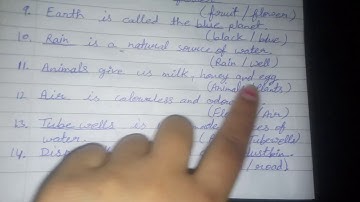 (fruit / flowers)
9. Earth is called the blue planet.
(black / blue)
10. Rain is a natural source of water.
(Rain / well)
11. Animals give us milk, honey and egg.
(Animals
12. Air is colourless and
/ Air)
13. Tube wells is
of
water.
Tubewells)
14.
dustbin.
/ road)